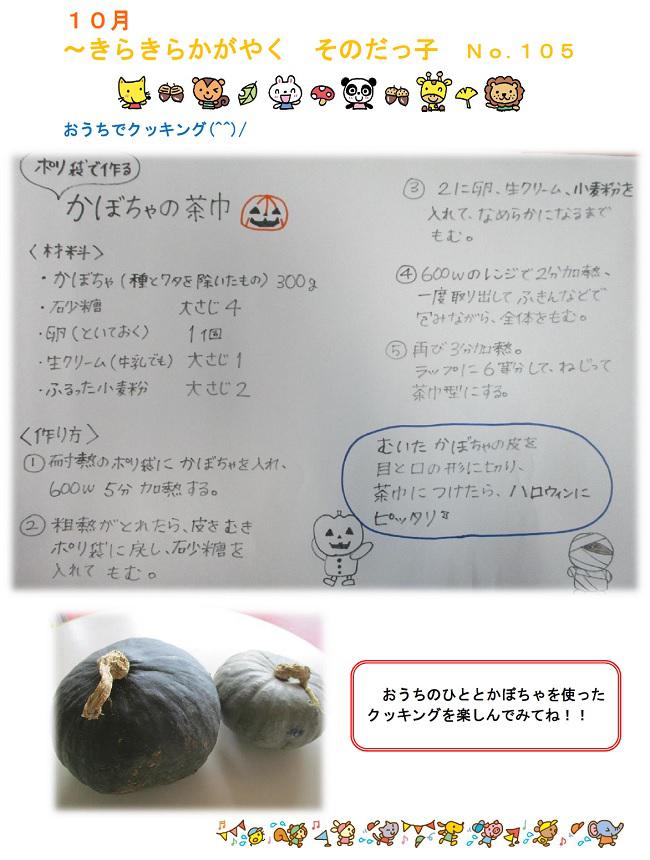 １０月
～きらきらかがやく　そのだっ子　Ｎｏ.１０５
おうちでクッキング(^^)/
ポリ袋で作る
かぼちゃの茶巾
〈材料〉
・かぼちゃ（種とワタを除いたもの）300g
・砂糖　大さじ4
・卵（といておく）　1個
・生クリーム（牛乳でも）大さじ1
・ふるった小麦粉　大さじ2
〈作り方〉
① 耐熱のポリ袋にかぼちゃを入れ、
600w 5分 加熱する。
② 粗熱がとれたら、皮をむき
ポリ袋に戻し、砂糖を
入れて もむ。
③ 2に卵、生クリーム、小麦粉を
入れて、なめらかになるまで
もむ。
④ 600wのレンジで2分加熱、
一度取り出して ふきんなどで
包みながら、全体をもむ。
⑤ 再び3分加熱。
ラップに6等分して、ねじって
茶巾型にする。
むいた かぼちゃの皮を
目と口の形に切り、
茶巾につけたら、ハロウィンに
ピッタリ!!
おうちのひととかぼちゃを使った
クッキングを楽しんでみてね！！